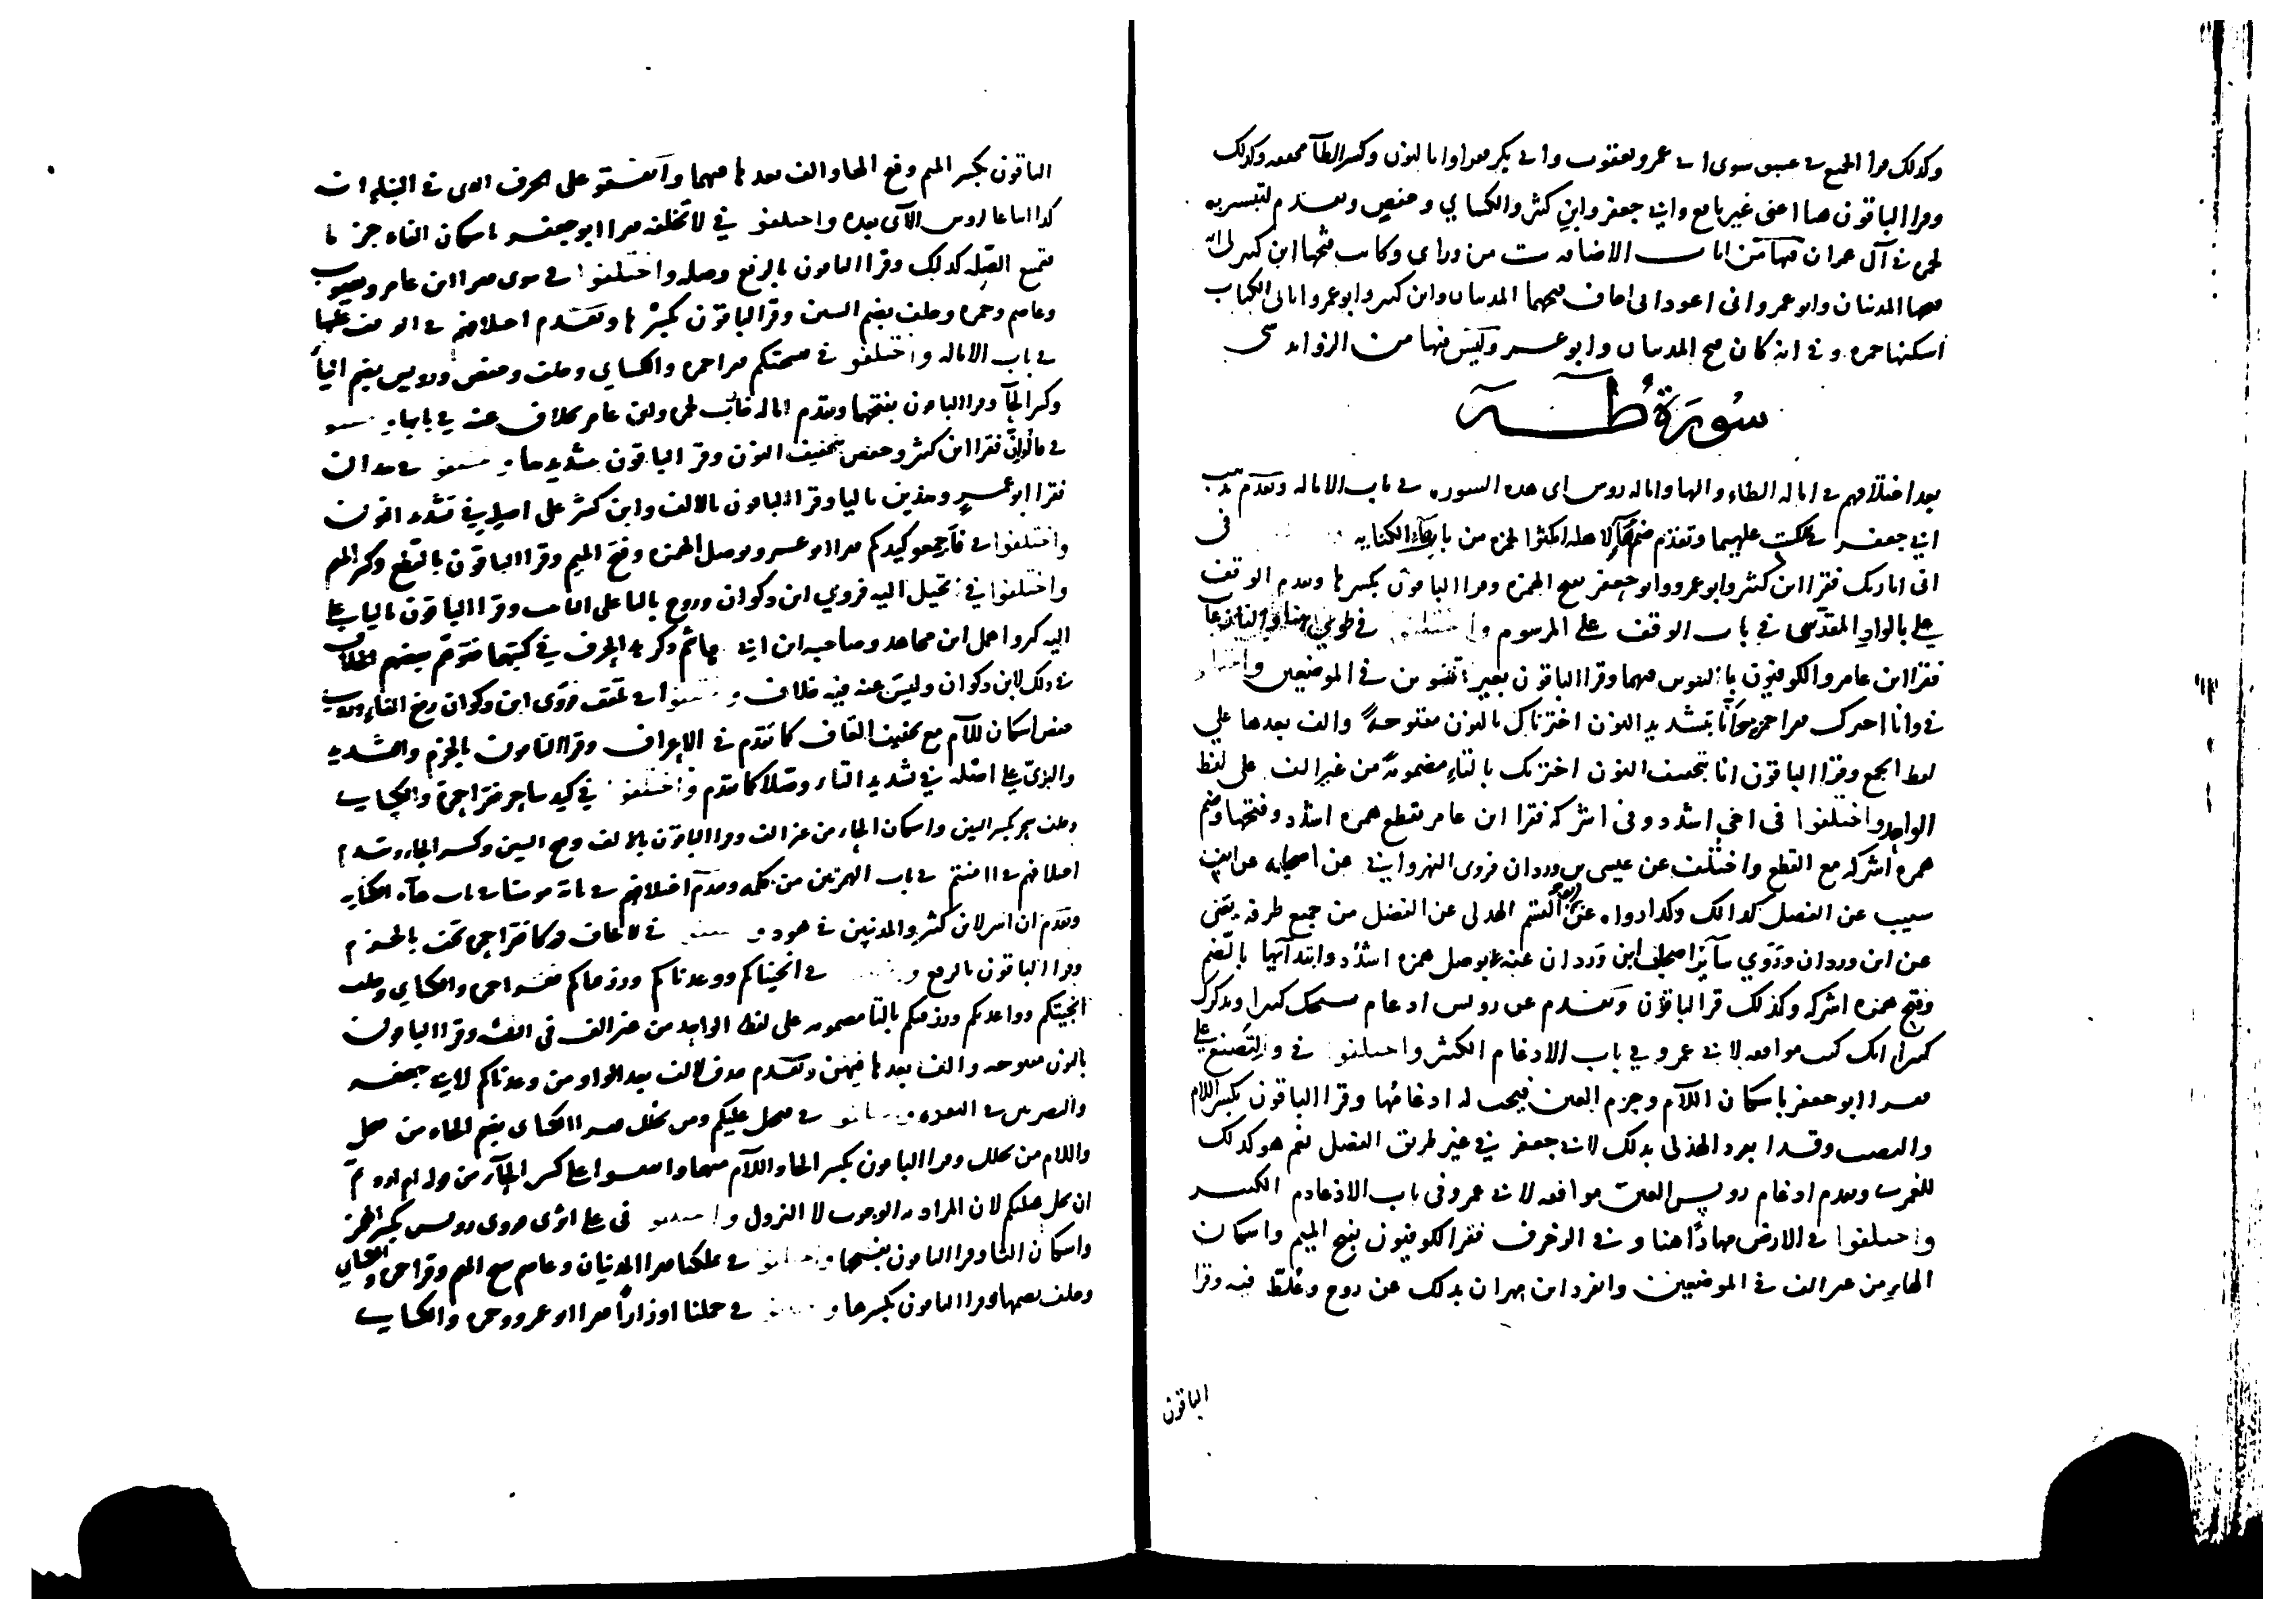 وكذلك قرا الجميع في عبس سوى ابي عمرو ويعقوب وابي بكر
وقرا الباقون اعني غير نافع وابي جعفر وابن كثير والكسائي وحفص وتقدم لتبشر به
في آل عمران فيها من ياات الاضافة ست من وراي وكانت فتحها ابن كثير
فتحها المدنيان وابو عمرو اني اعوذ اني اخاف فتحهما المدنيان وابن كثير وابو عمرو اتاني الكتاب
اسكنها حمزة وربي انه كان فتح المدنيان وابو عمرو وليس فيها من الزوايد شي
سُورَةُ طه
تقدم اختلافهم في امالة الطاء والها وامالة روس اى هذه السورة في باب الامالة وتقدم مذهب
ابي جعفر في السكت عليهما وتقدم ضم هاء لاهله امكثوا لحمزة من باب هاء الكناية
اني انا ربك فقرا ابن كثير وابو عمرو وابو جعفر بفتح الهمزة وقرا الباقون بكسرها وتقدم الوقف
على بالواد المقدس في باب الوقف على المرسوم واختلفوا في طوى هنا والنازعات
فقرا ابن عامر والكوفيون بالتنوين فيهما وقرا الباقون بغير تنوين في الموضعين واختلفوا
في وانا اخترتك فقرا حمزة وانا بتشديد النون اخترناك بالنون مفتوحة والف بعدها على
لفظ الجمع وقرا الباقون انا بتخفيف النون اخترتك بالتاء مضمومة من غير الف على لفظ
الواحد واختلفوا في اخي اشدد وفي اشركه فقرا ابن عامر بقطع همزة اشدد وفتحها وضم
همزة اشركه مع القطع واختلف عن عيسى بن وردان فروى النهرواني عن اصحابه عن ابن
شبيب عن الفضل كذلك وكذا رواه عن القسم الهذلي عن الفضل من جميع طرقه يعني
عن ابن وردان وروي سائر اصحاب ابن وردان عنه بوصل همزة اشدد وابتدائها بالضم
وفتح همزة اشركه وكذلك قرا الباقون وتقدم عن رويس ادغام نسبحك كثيرا ونذكرك
كثيرا انك كنت موافقة لابي عمرو في باب الادغام الكبير واختلفوا في ولتصنع على
فقرا ابو جعفر باسكان اللام وجزم العين فيجب له ادغامها وقرا الباقون بكسر اللام
والنصب وقد انفرد الهذلي بذلك لابي جعفر في غير طريق الفضل نعم هو كذلك
للعمري وتقدم ادغام رويس العين موافقة لابي عمرو في باب الادغام الكبير
واختلفوا في الارض مهادا هنا وفي الزخرف فقرا الكوفيون بفتح الميم واسكان
الهاء من غير الف في الموضعين وانفرد ابن مهران بذلك عن روح وغلط فيه وقرا
الباقون
الباقون بكسر الميم وفتح الها والف بعدها فيهما واتفقوا على الحرف الذي في النبا انه
كذا اتباعا لروس الآي بعده واختلفوا في لا نخلفه فقرا ابو جعفر باسكان الفاء جزما
فتمتنع الصلة كذلك وقرا الباقون بالرفع وصله واختلفوا في سوى فقرا ابن عامر ويعقوب
وعاصم وحمزة وخلف بضم السين وقرا الباقون بكسرها وتقدم اختلافهم في الوقف عليها
في باب الامالة واختلفوا في فيسحتكم فقرا حمزة والكسائي وخلف وحفص ورويس بضم اليا
وكسر الحا وقرا الباقون بفتحهما وتقدم امالة خاب لحمزة وابن عامر بخلاف عنه في بابها واختلفوا
في قالوا ان فقرا ابن كثير وحفص بتخفيف النون وقرا الباقون بتشديدها واختلفوا في هذان
فقرا ابو عمرو هذين باليا وقرا الباقون بالالف وابن كثير على اصله في تشديد النون
واختلفوا في فاجمعوا كيدكم فقرا ابو عمرو بوصل الهمزة وفتح الميم وقرا الباقون بالقطع وكسر الميم
واختلفوا في يخيل اليه فروي ابن ذكوان وروح بالتا على التانيث وقرا الباقون باليا على
في ذلك لابن ذكوان وليس عنه فيه خلاف واختلفوا في تلقف فروى ابن ذكوان رفع الفاء وروى
حفص اسكان اللام مع تخفيف القاف كما تقدم في الاعراف وقرا الباقون بالجزم والتشديد
والبزي على اصله في تشديد التاء وصلا كما تقدم واختلفوا في كيد ساحر فقرا حمزة والكسائي
وخلف سحر بكسر السين واسكان الحاء من غير الف وقرا الباقون بالالف وفتح السين وكسر الحاء وتقدم
اختلافهم في اامنتم في باب الهمزتين من كلمة وتقدم اختلافهم في ياته مومنا في باب هاء الكناية
وتقدم ان اسر لابن كثير والمدنيين في هود واختلفوا في لا تخاف دركا فقرا حمزة تخف بالجزم
وقرا الباقون بالرفع واختلفوا في انجيناكم ووعدناكم ورزقناكم فقرا حمزة والكسائي وخلف
انجيتكم وواعدتكم ورزقتكم بالتا مضمومة على لفظ الواحد من غير الف في الثلثة وقرا الباقون
بالنون مفتوحة والف بعدها فيهن وتقدم حذف الالف بعد الواو من وعدناكم لابي جعفر
والبصريين في البقرة واختلفوا في فيحل عليكم ومن يحلل فقرا الكسائي بضم الحاء من فيحل
واللام من يحلل وقرا الباقون بكسر الحا واللام منهما واتفقوا على كسر الحاء من قوله ام اردتم
ان يحل عليكم لان المراد به الوجوب لا النزول واختلفوا في على اثرى فروى رويس بكسر الهمزة
واسكان الثا وقرا الباقون بفتحهما واختلفوا في بملكنا فقرا المدنيان وعاصم بفتح الميم وقرا حمزة والكسائي
وخلف بضمها وقرا الباقون بكسرها واختلفوا في حملنا اوزارا فقرا ابو عمرو وحمزة والكسائي